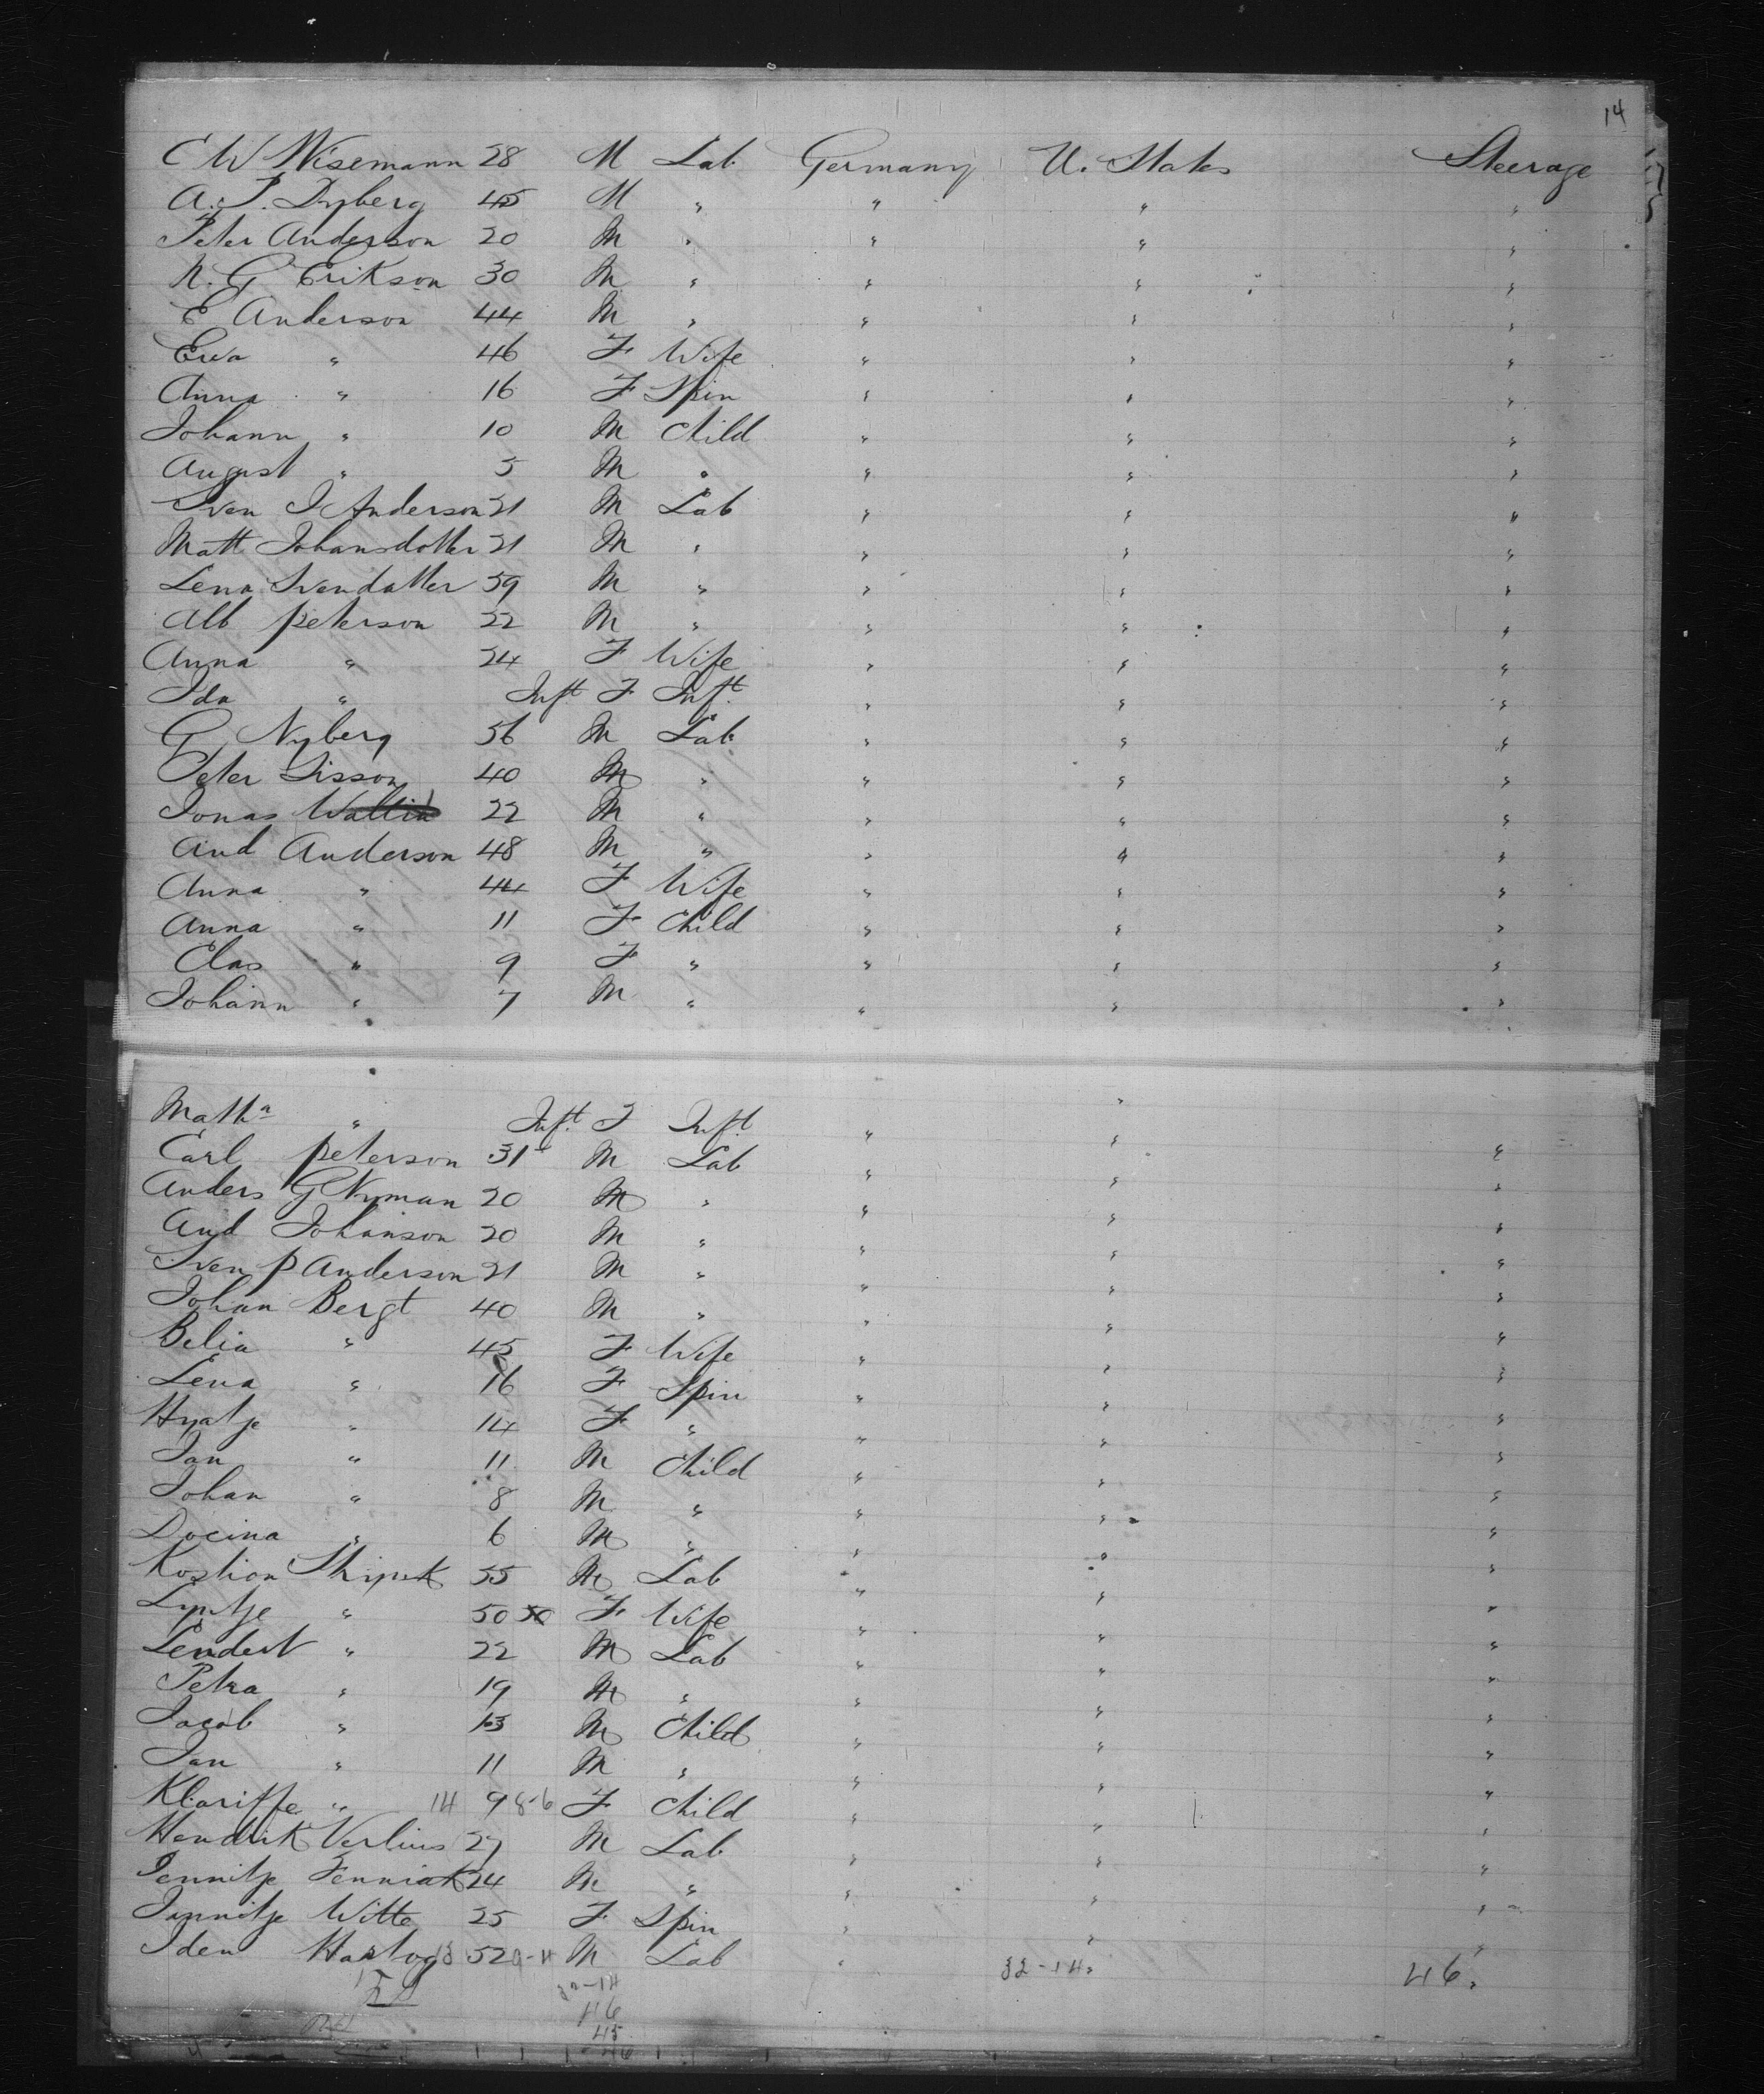 14
C W Wisemann 28 M Lab Germany U. States Steerage
A. P. Dyberg 45 M " " " "
Peter Anderson 20 M " " " "
N. G Erikson 30 M " " " "
E Anderson 44 M " " " "
Ewa " 46 F Wife " " "
Anna " 16 F Spin " " "
Johann " 10 M Child " " "
August " 5 M " " " "
Sven J Anderson 21 M Lab " " "
Matt Johansdotter 21 M " " " "
Lena Svendatter 59 M " " " "
Alb Peterson 22 M " " " "
Anna " 24 F Wife " " "
Ida " Inft F Inft " " "
G Nyberg 56 M Lab " " "
Peter Sisson 40 M " " " "
Jonas Wallin 22 M " " " "
And Anderson 48 M " " " "
Anna " 44 F Wife " " "
Anna " 11 F Child " " "
Clas " 9 F " " " "
Johann " 7 M " " " "
Matha " Inft. F Inft. " "
Carl Peterson 31 M Lab " " "
Anders G Nyman 20 M " " " "
And Johanson 20 M " " " "
Sven P Anderson 21 M " " " "
Johan Bergt 40 M " " " "
Belia " 45 F Wife " " "
Lena " 16 F Spin " " "
Hyatje " 14 F " " " "
Jan " 11 M Child " " "
Johan " 8 M " " " "
Docina " 6 M " " " "
Kostion 55 M Lab " " "
Lyntje " 50 50 F Wife " " "
Lendert " 22 M Lab " " "
Petra " 19 M " " " "
Jacob " 13 M Child " " "
Jan " 11 M " " " "
Klariffe " 14 9 8-6 F Child " " "
Hendrik Verlius 27 M Lab " " "
Jennitje Fenniak 24 M " " " "
Jannitje Witte 25 F Spin " " "
Iden Hartog 52 M Lab " " "
32-14. 46.
32-14
46
45